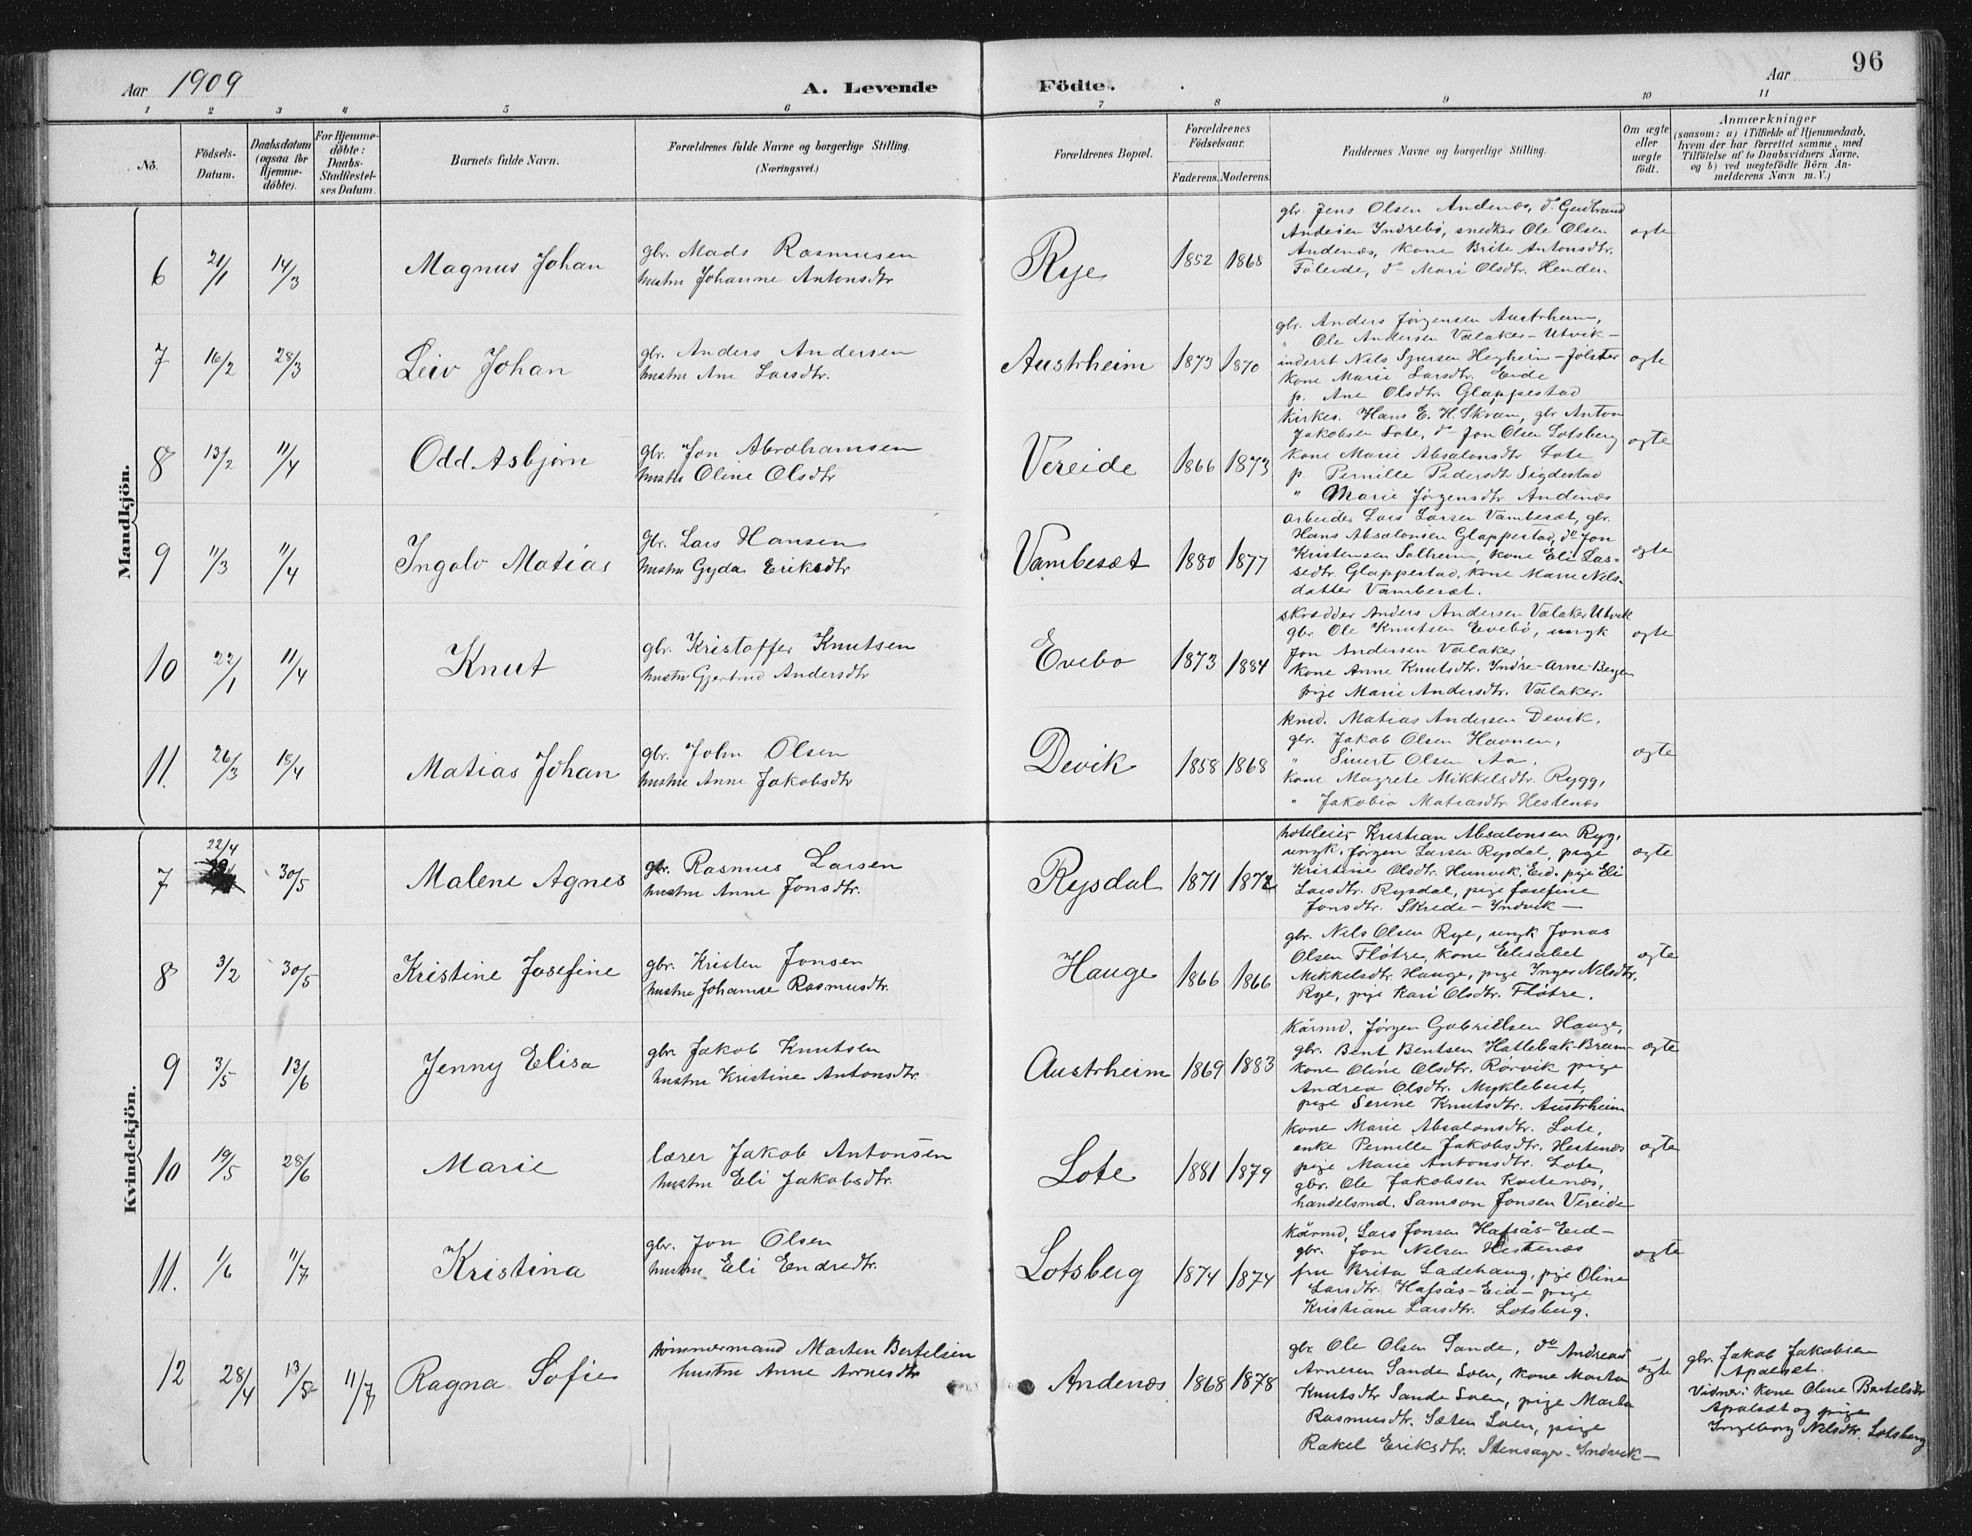 Aar 1909
A. Levende
Födte.
Aar
96
1 2 3 4 5 6 7 8 9 10 11
No.
Födsels-Datum.
Daabsdatum (ogsaa for Hjemme-döbte).
For Hjemme-döbte: Daabs-Stadfæstel-ses Datum.
Barnets fulde Navn.
Forældrenes fulde Navne og borgerlige Stilling.
(Næringsvei.)
Forældrenes Bopæl.
Forældrenes Födselsaar.
Faderens. Moderens.
Faddernes Navne og borgerlige Stilling.
Om ægte eller uægte födt.
Anmærkninger
(saasom: a) i Tilfælde af Hjemmedaab,
hvem der har forrettet samme, med
Tilföielse af to Daabsvidners Navne,
og b) ved uægtefödte Börn An-
melderens Navn m. V.)
Mandkjön.
6 21/1 14/3 Magnus Johan
gbr. Mads Rasmusen
hustru Johanne Antonsdtr
Rye 1852 1868
gbr. Jens Olsen Andenæs, do Gudbrand
Andersen Indrebø, snedker Ole Olsen
Andenæs, kone Brite Antonsdtr.
Faleide, do Mari Olsdtr. Henden
ægte
7 16/2 28/3 Leiv Johan
gbr. Anders Andersen
hustru Ane Larsdtr.
Austrheim 1873 1870
gbr. Anders Jørgensen Austrheim,
" Ole Andersen Valaker - Utvik -
inderst Nels Hegheim - Jølster
kone Marie Larsdtr. Eide
p. Ane Olsdtr. Glappestad
ægte
8 13/2 11/4 Odd Asbjørn
gbr. Jon Abrahamsen
hustru Oline Olsdtr
Vereide 1866 1873
kirkes. Hans E. H. Skram, gbr Anton
Jakobsen Lote, do Jon Olsen Lotsberg
kone Marie Absalonsdtr Lote
p. Pernille Pedersdtr Sigdestad
" Marie Jørgensdtr Andenæs
ægte
9 11/3 11/4 Ingolv Matias
gbr. Lars Hansen
hustru Gyda Eriksdtr
Vambesæt 1880 1877
arbeider Lars Larsen Vambesæt, gbr.
Hans Absalonsen Glappestad, do Jon
Kristensen Solheim, kone Eli Las-
sedtr. Glappestad, kone Marie Nils-
datter Vambesæt.
ægte
10 22/1 11/4 Knut
gbr. Kristoffer Knutsen
hustru Gjertrud Andersdtr
Evebø 1873 1884
skrædder Anders Andersen Valaker Utvik
gbr. Ole Knutsen Evebø, ungk
Jon Andersen Valaker,
kone Anne Knutsdtr. Indre-Arne-Bergen
pige Marie Andersdtr. Valaker.
ægte
11. 26/3 18/4 Matias Johan
gbr. John Olsen
hustru Anne Jakobsdtr
Devik 1858 1868
kmd. Matias Andersen Devik,
gbr. Jakob Olsen Havnen,
" Sivert Olsen Aa,
kone Magrete Mikkelsdtr. Rygg,
" Jakobia Matiasdtr. Hestenæs
ægte
Kvindekjön.
7 22/4 30/5 Malene Agnes
gbr. Rasmus Larsen
hustru Anne Jonsdtr.
Rysdal 1871 1872
hoteleier Kristian Absalonsen Ryg,
ungk. Jørgen Larsen Rysdal, pige
Kristine Olsdtr. Hunvik, Eid, pige Eli
Larsdtr. Rysdal, pige Josefine
Jonsdtr. Skrede - Indvik -
ægte
8 3/2 30/5 Kristine Josefine
gbr. Kristen Jonsen
hustru Johanne Rasmusdtr.
Hauge 1866 1866
gbr. Nels Olsen Rye, ungk Jonas
Olsen Fløtre, kone Elisabet
Mikkelsdtr. Hauge, pige Inger Nilsdtr.
Rye, pige Kari Olsdtr. Fløtre.
ægte
9 3/5 13/6 Jenny Elisa
gbr. Jakob Knutsen
hustru Kristine Antonsdtr.
Austrheim 1869 1883
kårmd. Jørgen Gabrielsen Hauge,
gbr. Bent Bentsen Hatlebak-Brem-
kone Oline Olsdtr. Rørvik pige
Andrea Olsdtr. Myklebust,
pige Serine Knutsdtr. Austrheim
ægte
10 19/5 28/6 Marie
lærer Jakob Antonsen
hustru Eli Jakobsdtr.
Lote 1881 1879
kone Marie Absalonsdtr. Lote,
enke Pernille Jakobsdtr. Hestenæs
pige Marie Antonsdtr. Lote,
gbr. Ole Jakobsen Kvitenæs,
handelsmd. Samson Jonsen Vereide
ægte
11. 1/6 11/7 Kristina
gbr. Jon Olsen
hustru Eli Endredtr.
Lotsberg 1874 1874
kårmd, Lars Jonsen Hafsås-Eid-
gbr. Jon Nelsen Hestenæs
fru Brita Ladehaug, pige Oline
Larsdtr. Hafsås-Eid- pige
Kristiane Larsdtr. Lotsberg.
ægte
12 28/4 13/5 11/7 Ragna Sofie
tømmermand Marten Bertelsen
hustru Anne Arnesdtr
Andenæs 1868 1878
gbr. Ole Olsen Sande, do Andreas
Arnesen Sande Loen, kone Marta
Knutsdtr Sande Loen, pige Marta
Rasmusdtr. Sæten Loen, pige
Rakel Eriksdtr. Stensager - Indvik -
ægte
gbr. Jakob Jakobsen
Apalset.
Vidner: kone Oline Bertelsdtr
Apalsæt og pige
Ingeborg Nelsdtr. Lotsberg